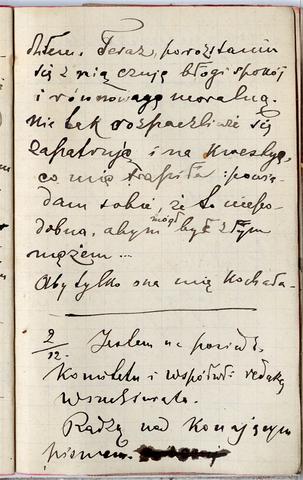 dziłem. Teraz, porozstaniu
się z nią czuję błogi spokój
i równowagę moralną.
Nie tak rozpaczliwie się
zapatruję i na kwestyę,
co mię trapiła i powia-
dam sobie, że to niepo-
dobna, abym mógł być złym
mężem...
Aby tylko ona mię kochała-
2/12. Jestem na posiedz.
Komitetu i współwł. redakcy
Wszechświata.
Radzą nad konającym
pismem.